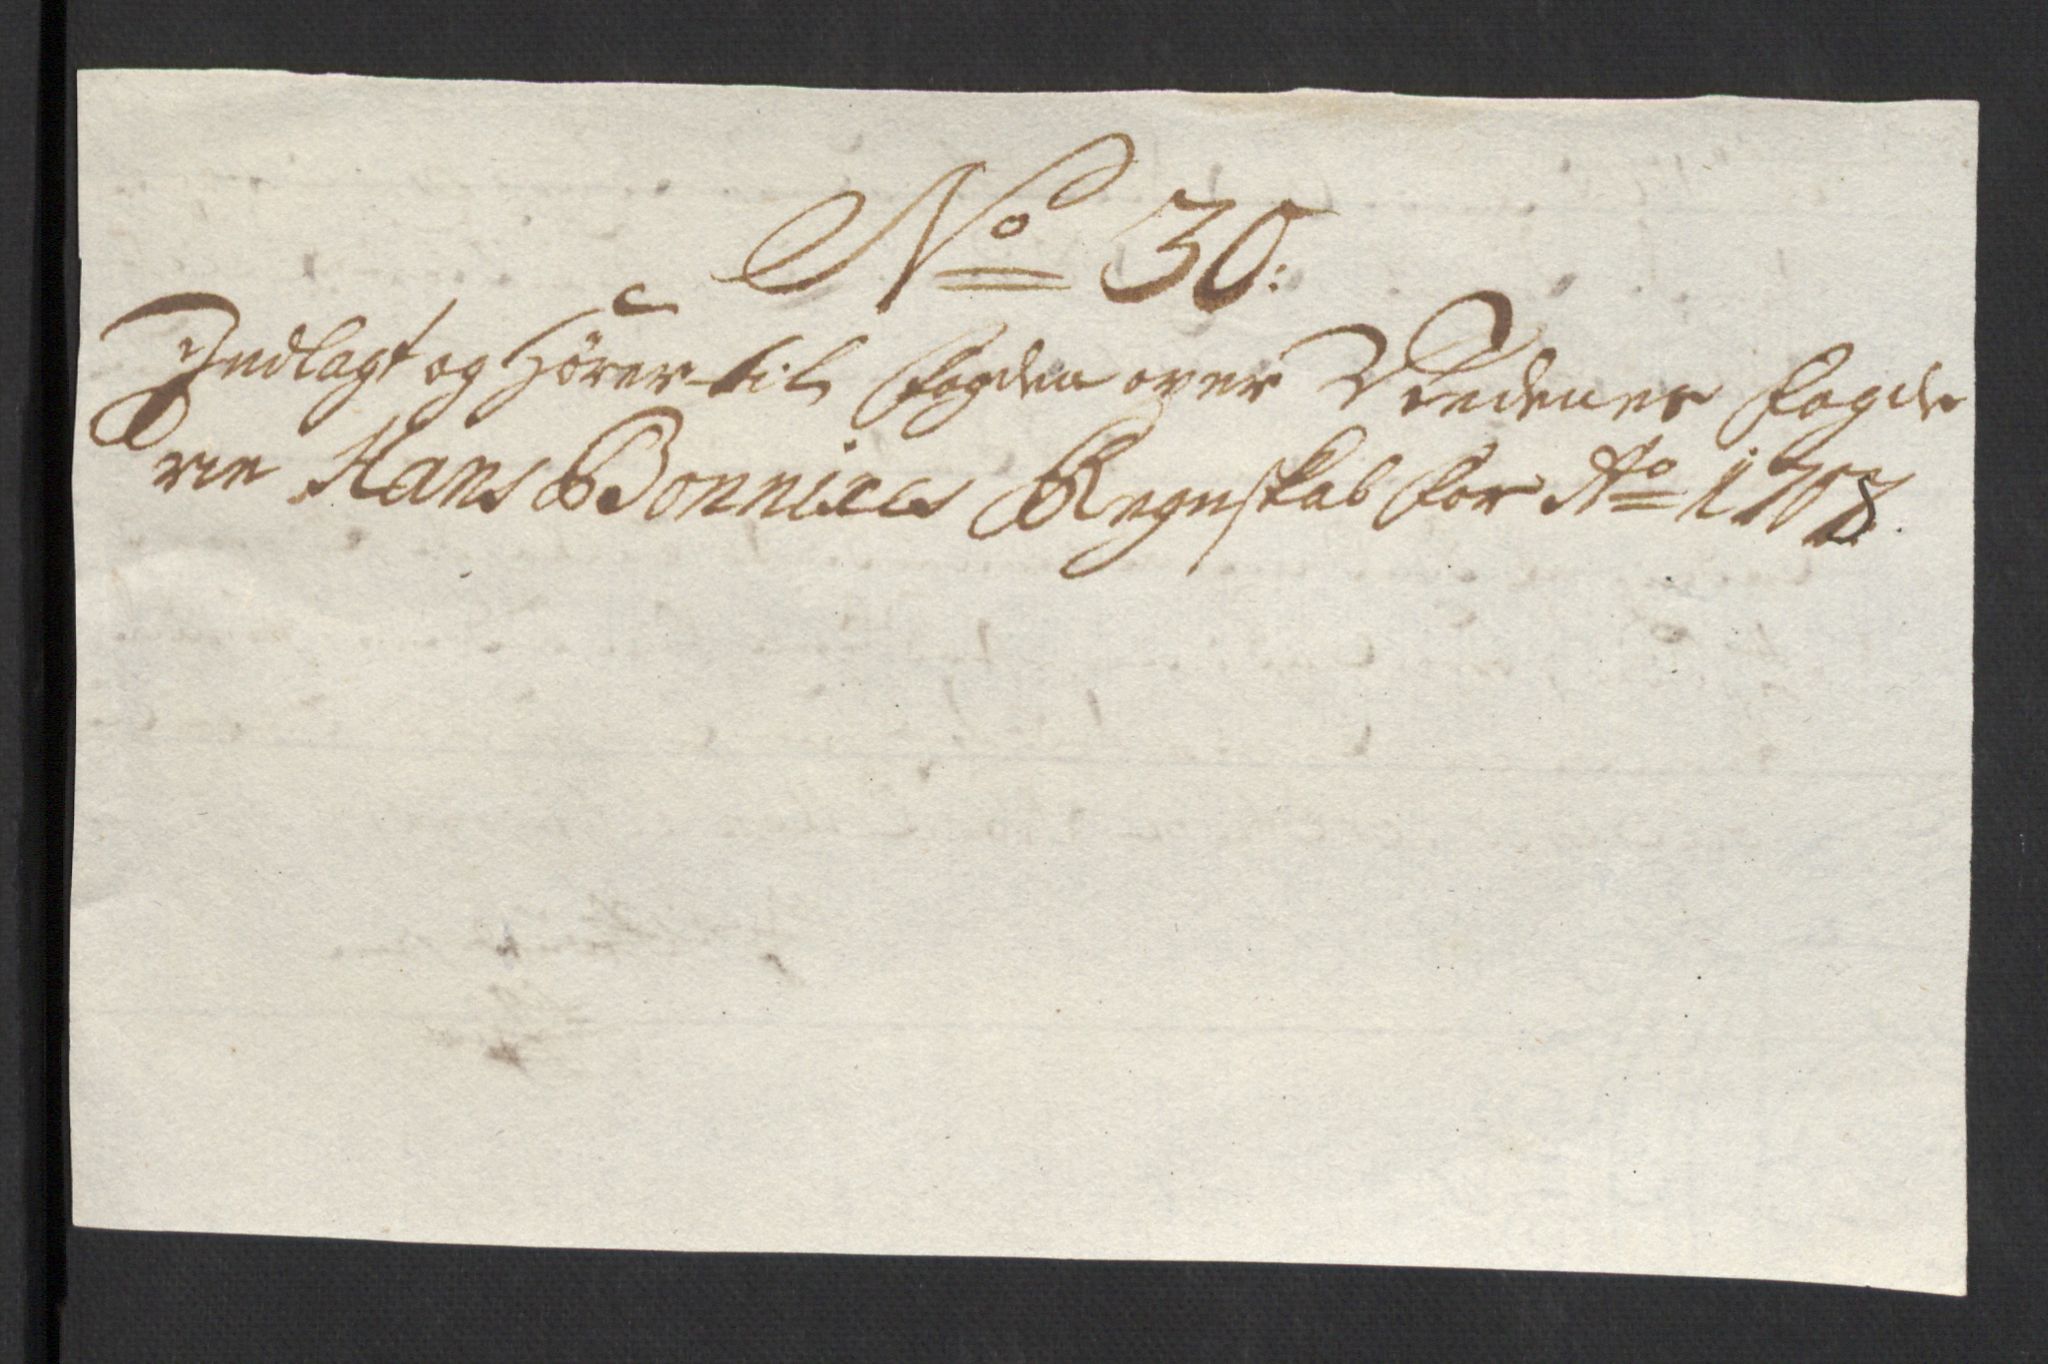 No 30:
Indlagt og Hörer til fogden over Nedenes fogde
rie Hans Bonnixes Regnskab for Ao 1708.